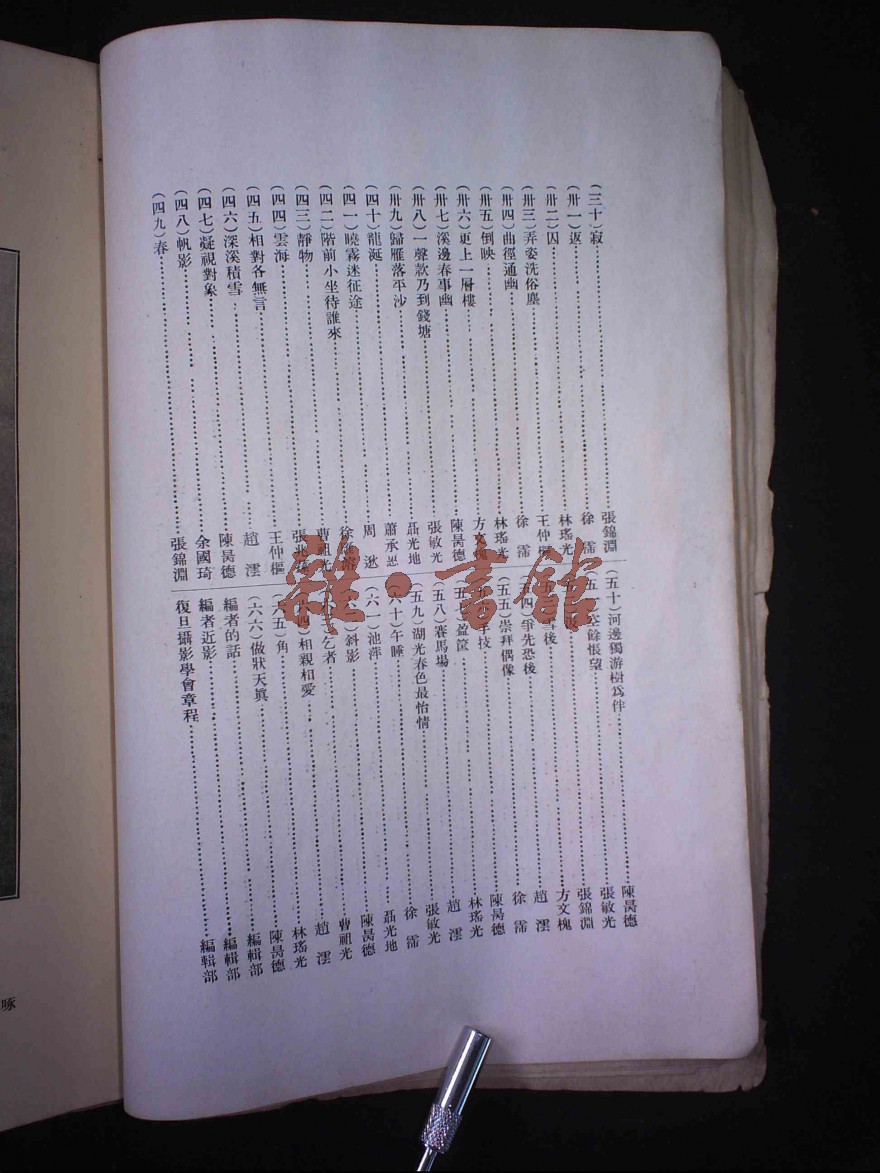 (三十)寂……張錦淵
(卅一)返……徐霈
(卅二)囚……林瑤光
(卅三)弄姿洗俗塵……王仲樞
(卅四)曲徑通幽……徐霈
(卅五)倒映……林瑤光
(卅六)更上一層樓……方文槐
(卅七)溪邊春事幽……陳昺德
(卅八)一聲款乃到錢塘……張敏光
(卅九)歸雁落平沙……聶光地
(四十)龍涎……蕭承恩
(四一)曉霧迷征途……周逖
(四二)階前小坐待誰來……徐
(四三)靜物……曹祖光
(四四)雲海……張
(四五)相對各無言……王仲樞
(四六)深溪積雪……趙澐
(四七)凝視對象……陳昺德
(四八)帆影……余國琦
(四九)春……張錦淵
(五十)河邊獨游樹爲伴……陳昺德
(五一)空餘悵望……張敏光
……張錦淵
後……方文槐
(五四)爭先恐後……趙澐
(五五)崇拜偶像……徐霈
手技……陳昺德
(五七)盈筐……林瑤光
(五八)賽馬場……趙澐
(五九)湖光春色最怡情……張敏光
(六十)午睡……徐霈
(六一)池萍……聶光地
斜影……陳昺德
乞者……曹祖光
(六四)相親相愛……趙澐
(六五)角……林瑤光
(六六)做狀天眞……陳昺德
編者的話……編輯部
編者近影……編輯部
復旦攝影學會章程……編輯部
啄
雜·書館